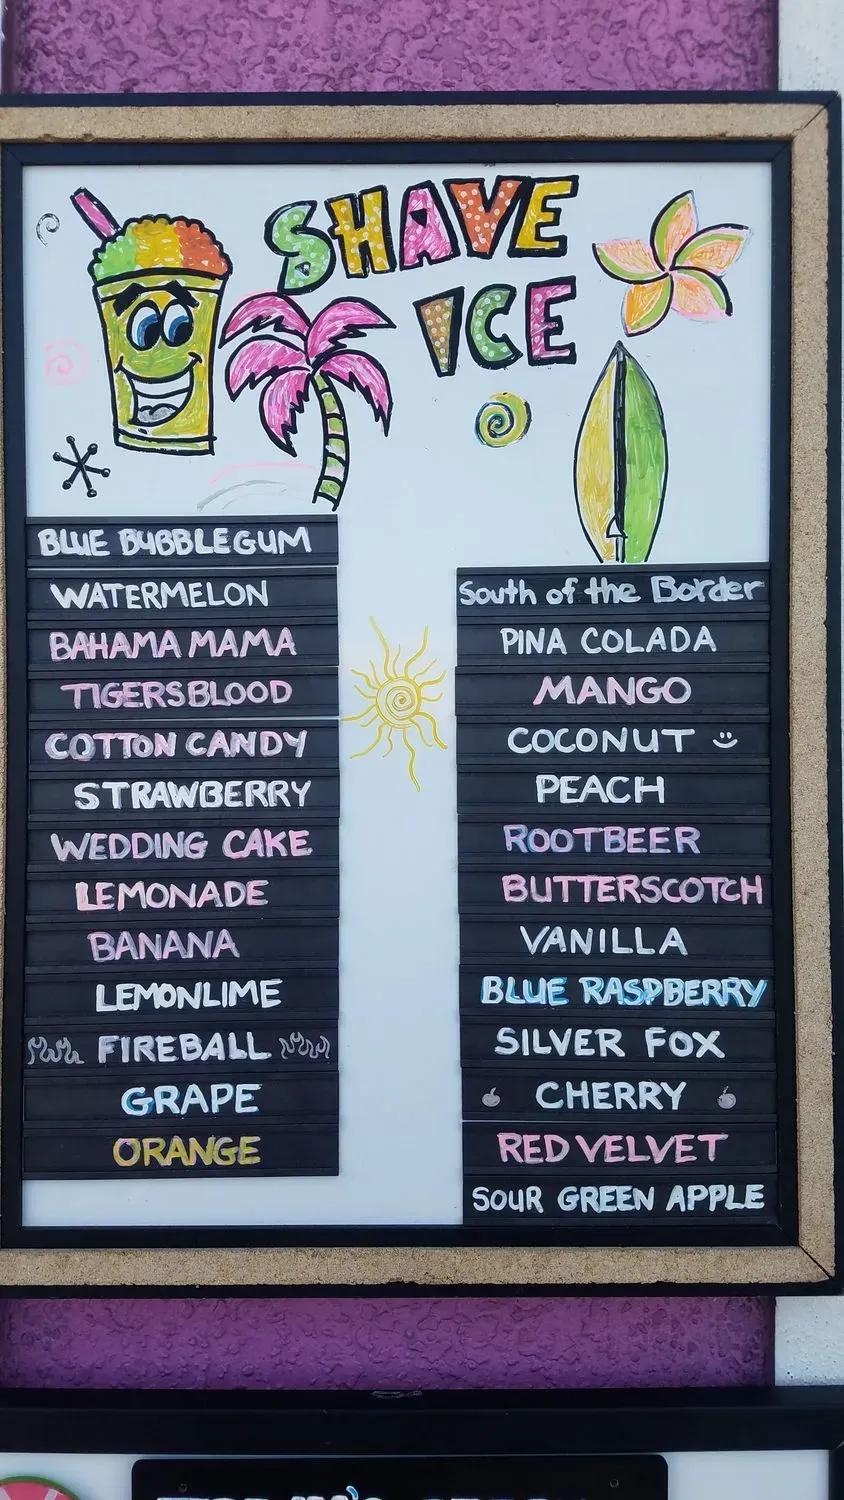 SHAVE
ICE
BLUE BUBBLEGUM
WATERMELON
BAHAMA MAMA
TIGERSBLOOD
COTTON CANDY
STRAWBERRY
WEDDING CAKE
LEMONADE
BANANA
LEMONLIME
FIREBALL
GRAPE
ORANGE
South of the Border
PINA COLADA
MANGO
COCONUT
PEACH
ROOTBEER
BUTTERSCOTCH
VANILLA
BLUE RASPBERRY
SILVER FOX
CHERRY
RED VELVET
SOUR GREEN APPLE